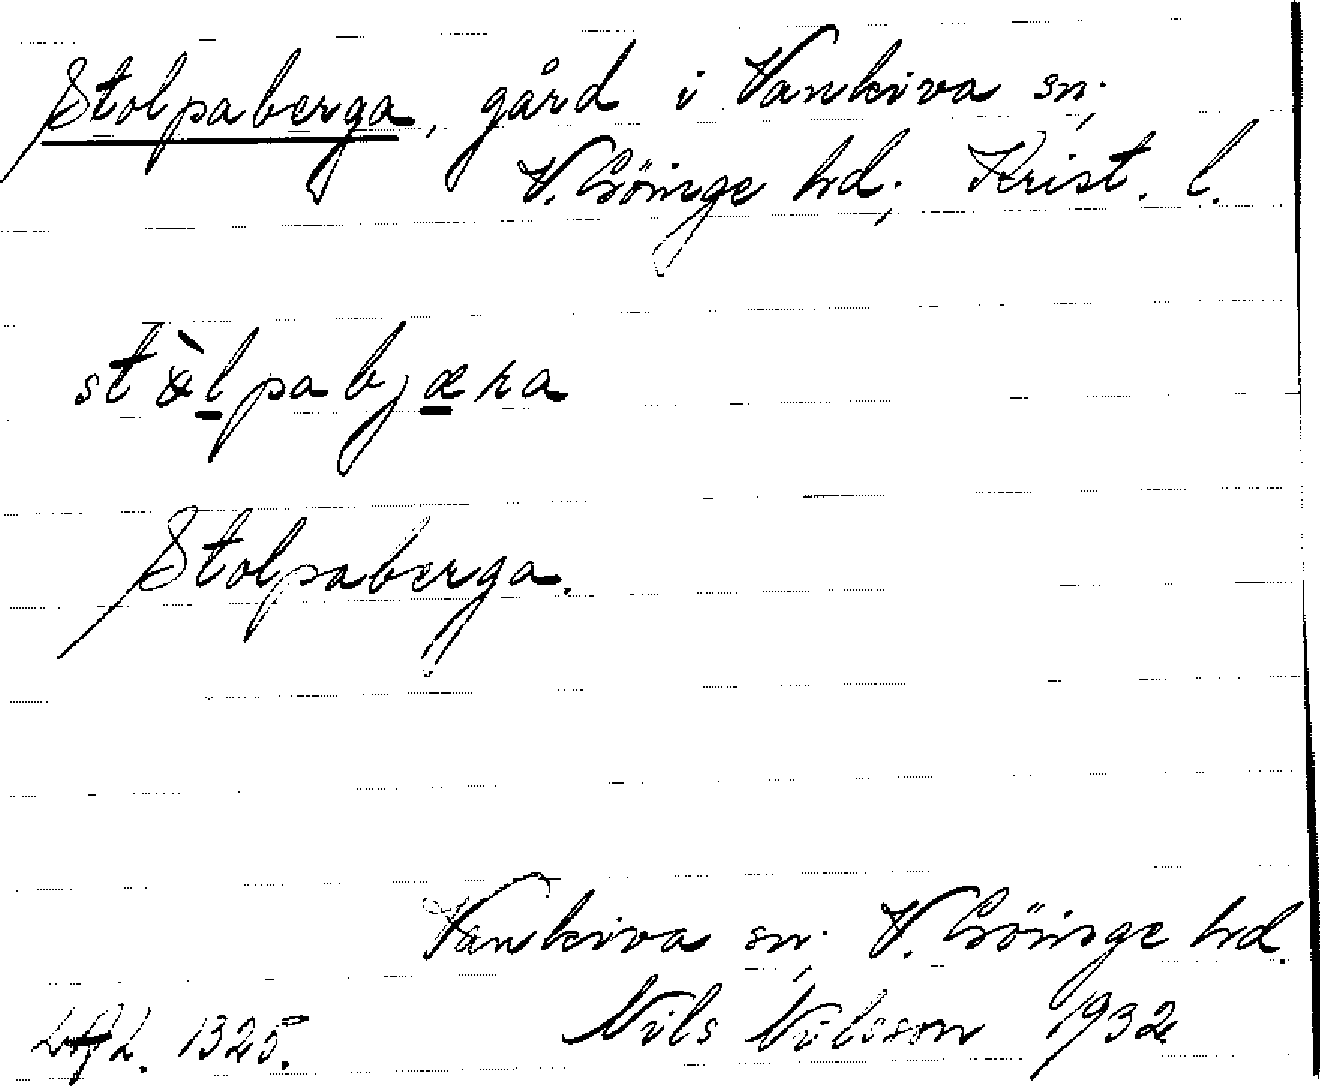 Stolpaberga, gård i Vankiva sn;
V. Göinge hd; Krist. l.
stòlpabjæra
Stolpaberga.
Vankiva sn; V. Göinge hd.
1325. Nils Nilsson 1932